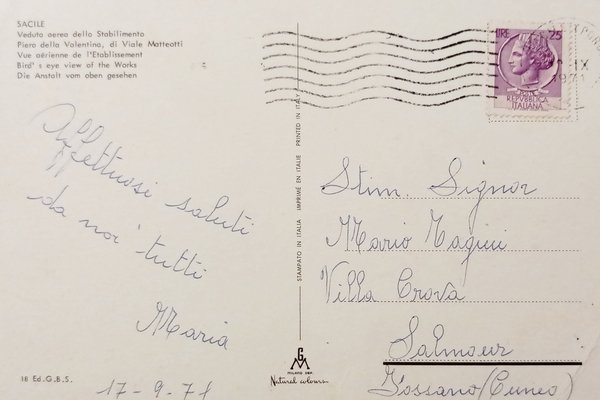 SACILE
Veduta aerea dello Stabilimento
Piera della Valentina, di Viale Matteotti
Vue aérienne de l'Etablissement
Bird' s eye view of the Works
Die Anstolt vom oben gesehen
LIRE 25
REPVBBLICA
ITALIANA
IX
1971
Affettuosi saluti
da noi tutti
Maria
17-9-71
18 Ed. G.B.S.
STAMPATO IN ITALIA IMPRIMÉ EN ITALIE PRINTED IN ITALY
GM
Natural colours
Stim. Signor
Mario Magini
Villa Crova
Salmour
Fossano (Cuneo)